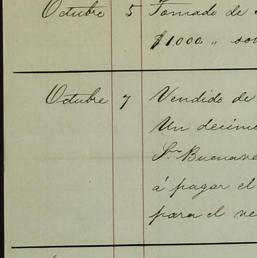 Octubre 5 Tomado de
$1.000 „ son
Octubre 7 Vendido de
Un decimo
Sr Buenave
á pagar el
para el ve